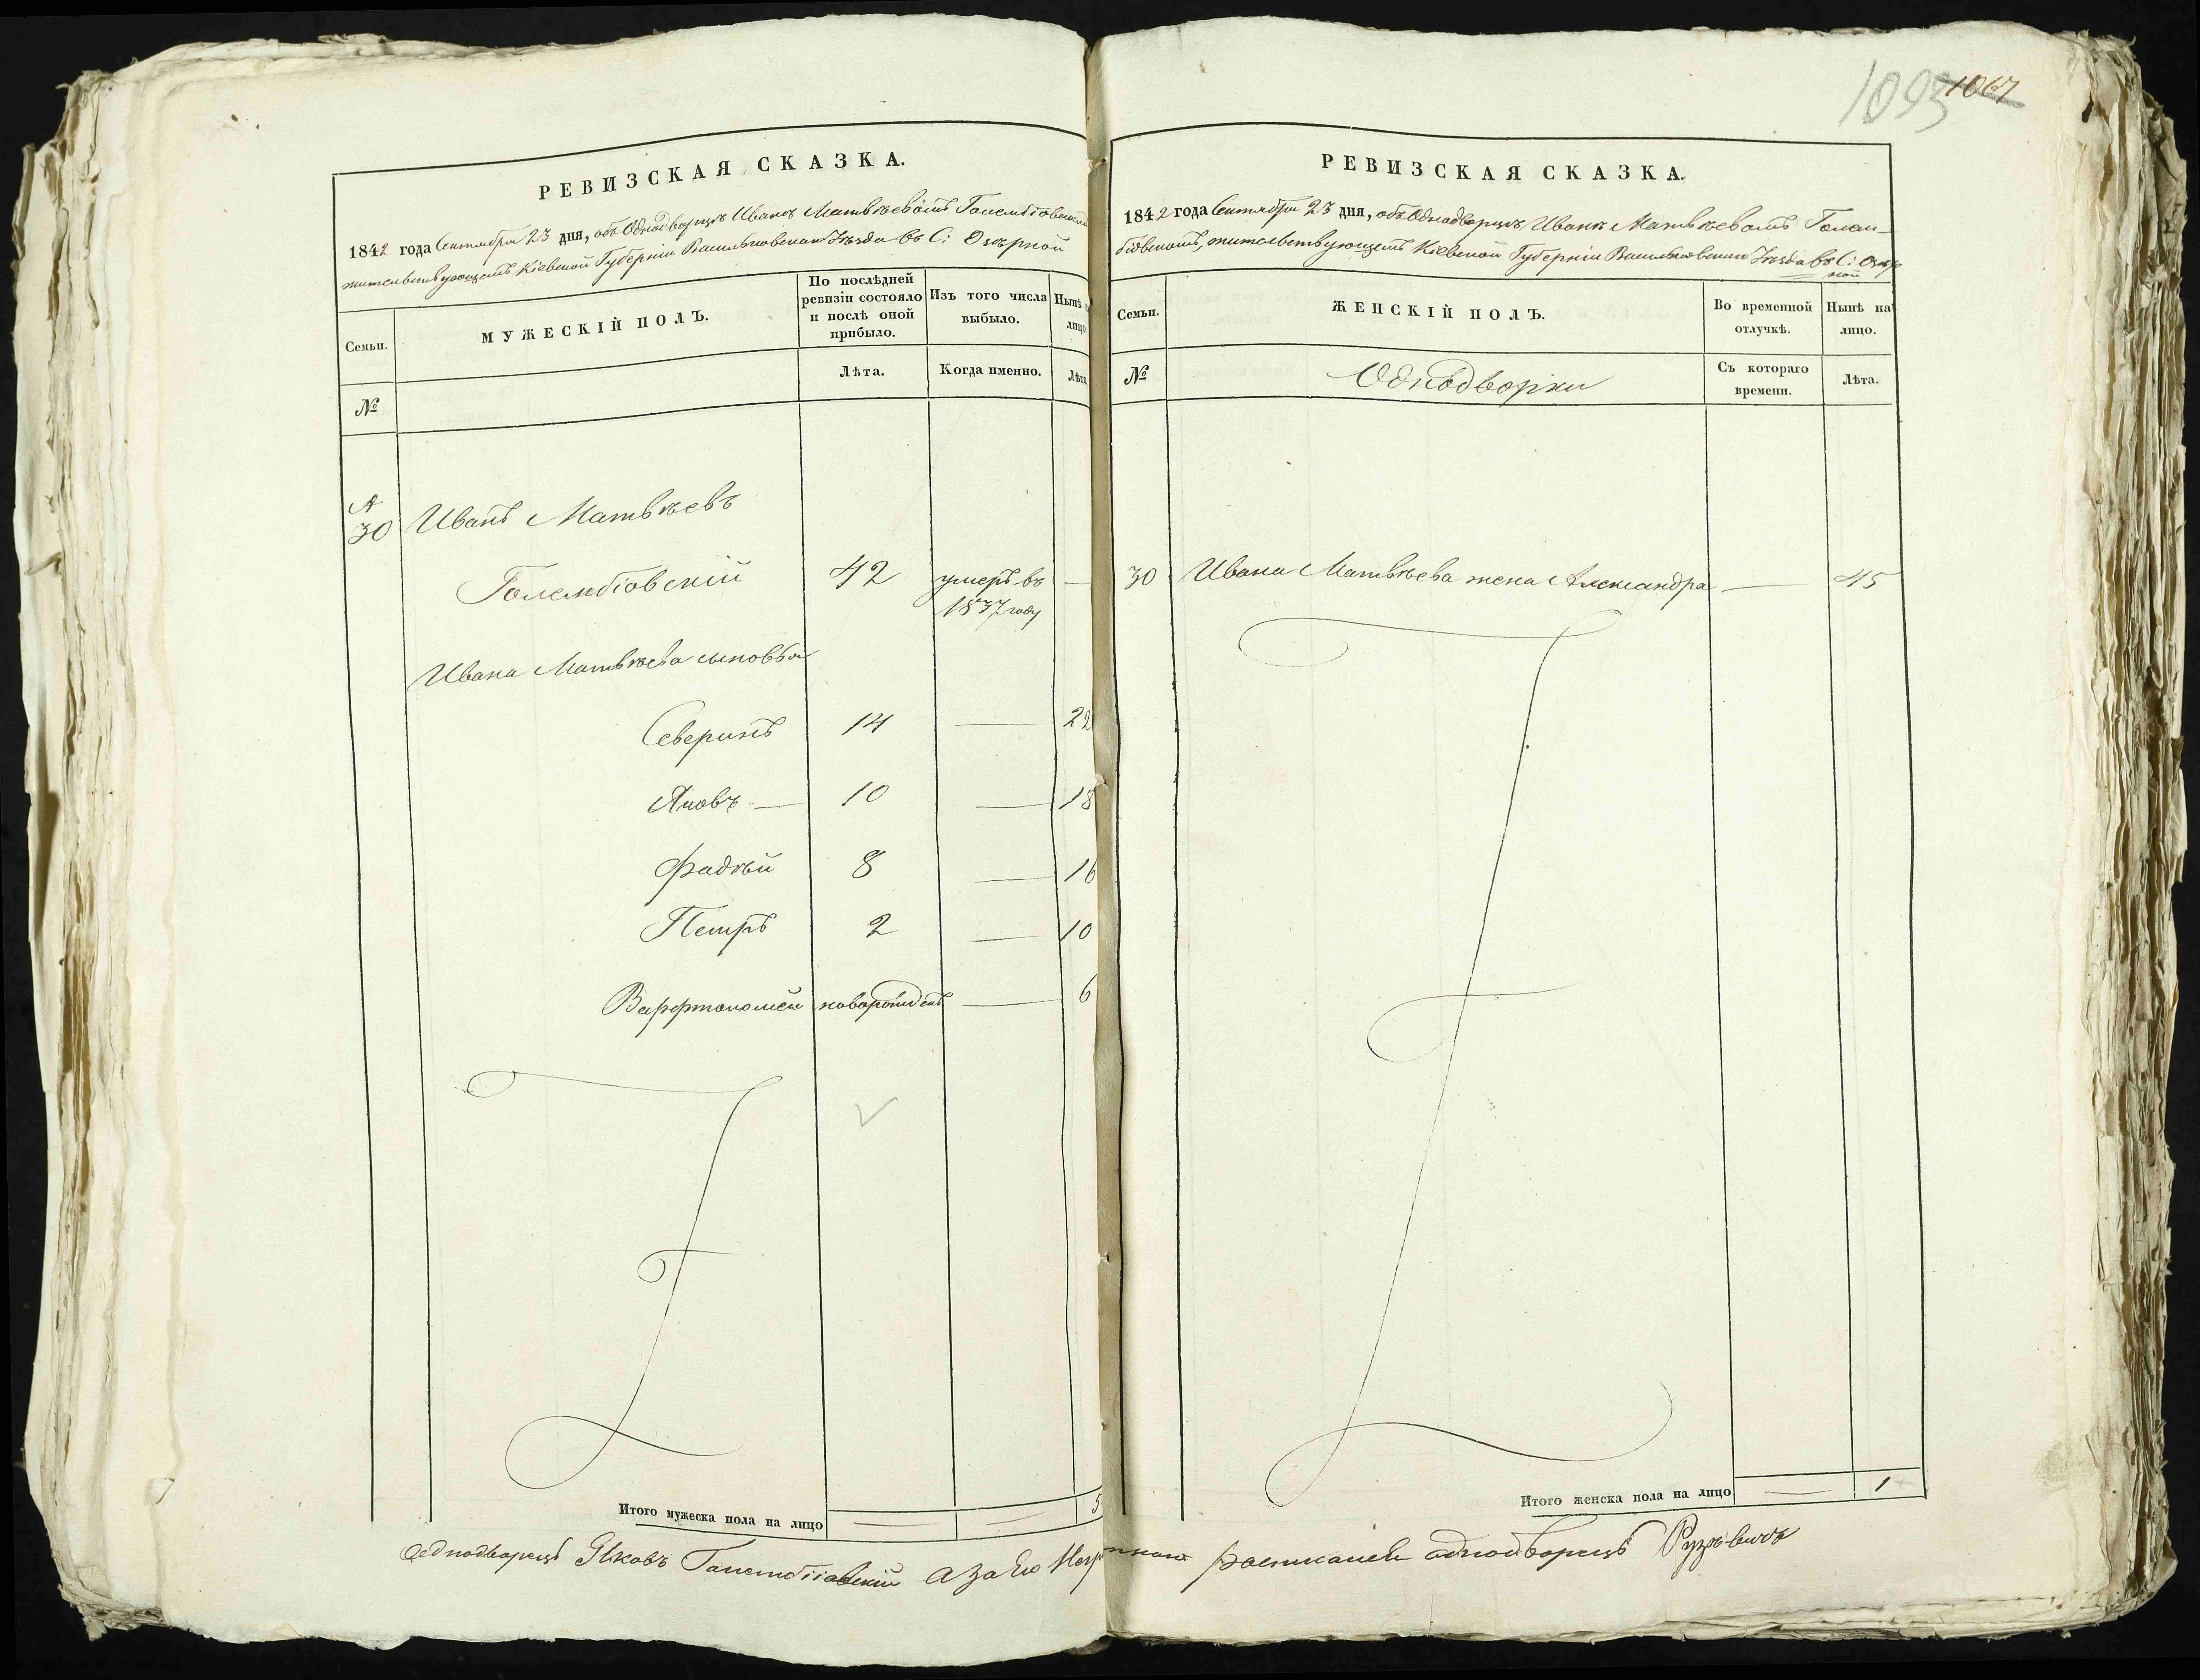 РЕВИЗСКАЯ СКАЗКА.
1842 года Сентября 23 дня, объ Однодворцѣ Иванѣ Матвѣевомъ Голембіовскомъ
жительствующемъ Кіевской Губерніи Васильковскаго Уѣзда въ С: Озѣрной
Семьи.
МУЖЕСКІЙ ПОЛЪ.
По послѣдней ревизіи состояло и послѣ оной прибыло.
Изъ того числа выбыло.
Нынѣ на лицо.
№
Лѣта.
Когда именно.
Лѣта.
№
30 Иванъ Матвѣевъ
Голембіовскій 42 умеръ въ —
1837 году
Ивана Матвѣева сыновья
Северинъ 14 — 22
Яковъ — 10 — 18
Фадѣй 8 — 16
Петръ 2 — 10
Варфтоломей новорожденъ — 6
Итого мужеска пола на лицо — — 5
Однодворецъ Яковъ Голембіовскій а за Его Негр
1093 1067
РЕВИЗСКАЯ СКАЗКА.
1842 года Сентября 23 дня, объ Однодворцѣ Иванѣ Матвѣевомъ Голем-
біовскомъ, жительствующемъ Кіевской Губерніи Васильковскаго Уѣзда въ С: Озѣр
ной
Семьи.
ЖЕНСКІЙ ПОЛЪ.
Во временной отлучкѣ.
Нынѣ на лицо.
№
Однодворки
Съ котораго времени.
Лѣта.
30 Ивана Матвѣева жена Александра — 45
Итого женска пола на лицо — 1
однодворецъ